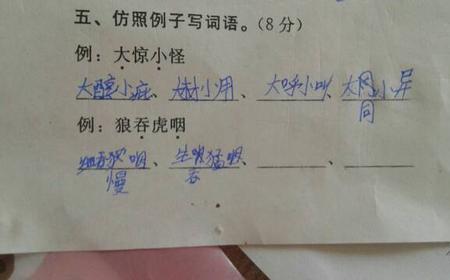 五、仿照例子写词语。(8分)
例：大惊小怪
大醇小疵、大材小用、大呼小叫、大同小异
例：狼吞虎咽
细 慢咽、生吞猛咽、